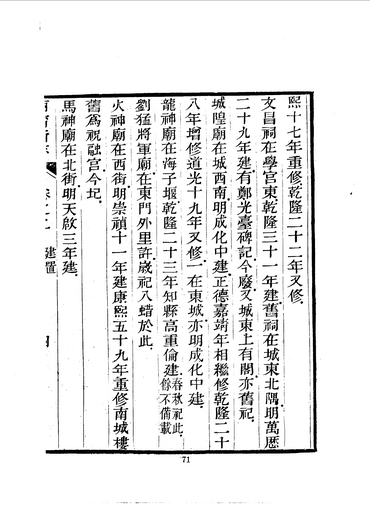 熙十七年重修乾隆二十二年又修
文昌祠在學宮東乾隆三十一年建舊祠在城東北隅明萬厯
二十九年建有鄭光臺碑記今廢又城東上有閣亦舊祀
城隍廟在城西南明成化中建正德嘉靖年相繼修乾隆二十
八年增修道光十九年又修一在東城亦明成化中建
龍神廟在海子堰乾隆二十三年知縣高重倫建春秋祀此餘不備載
劉猛將軍廟在東門外里許歲祀八蜡於此
火神廟在西街明崇禎十一年建康熙五十九年重修南城樓
舊為祝融宮今圮
馬神廟在北街明天啟三年建
建置
四
71